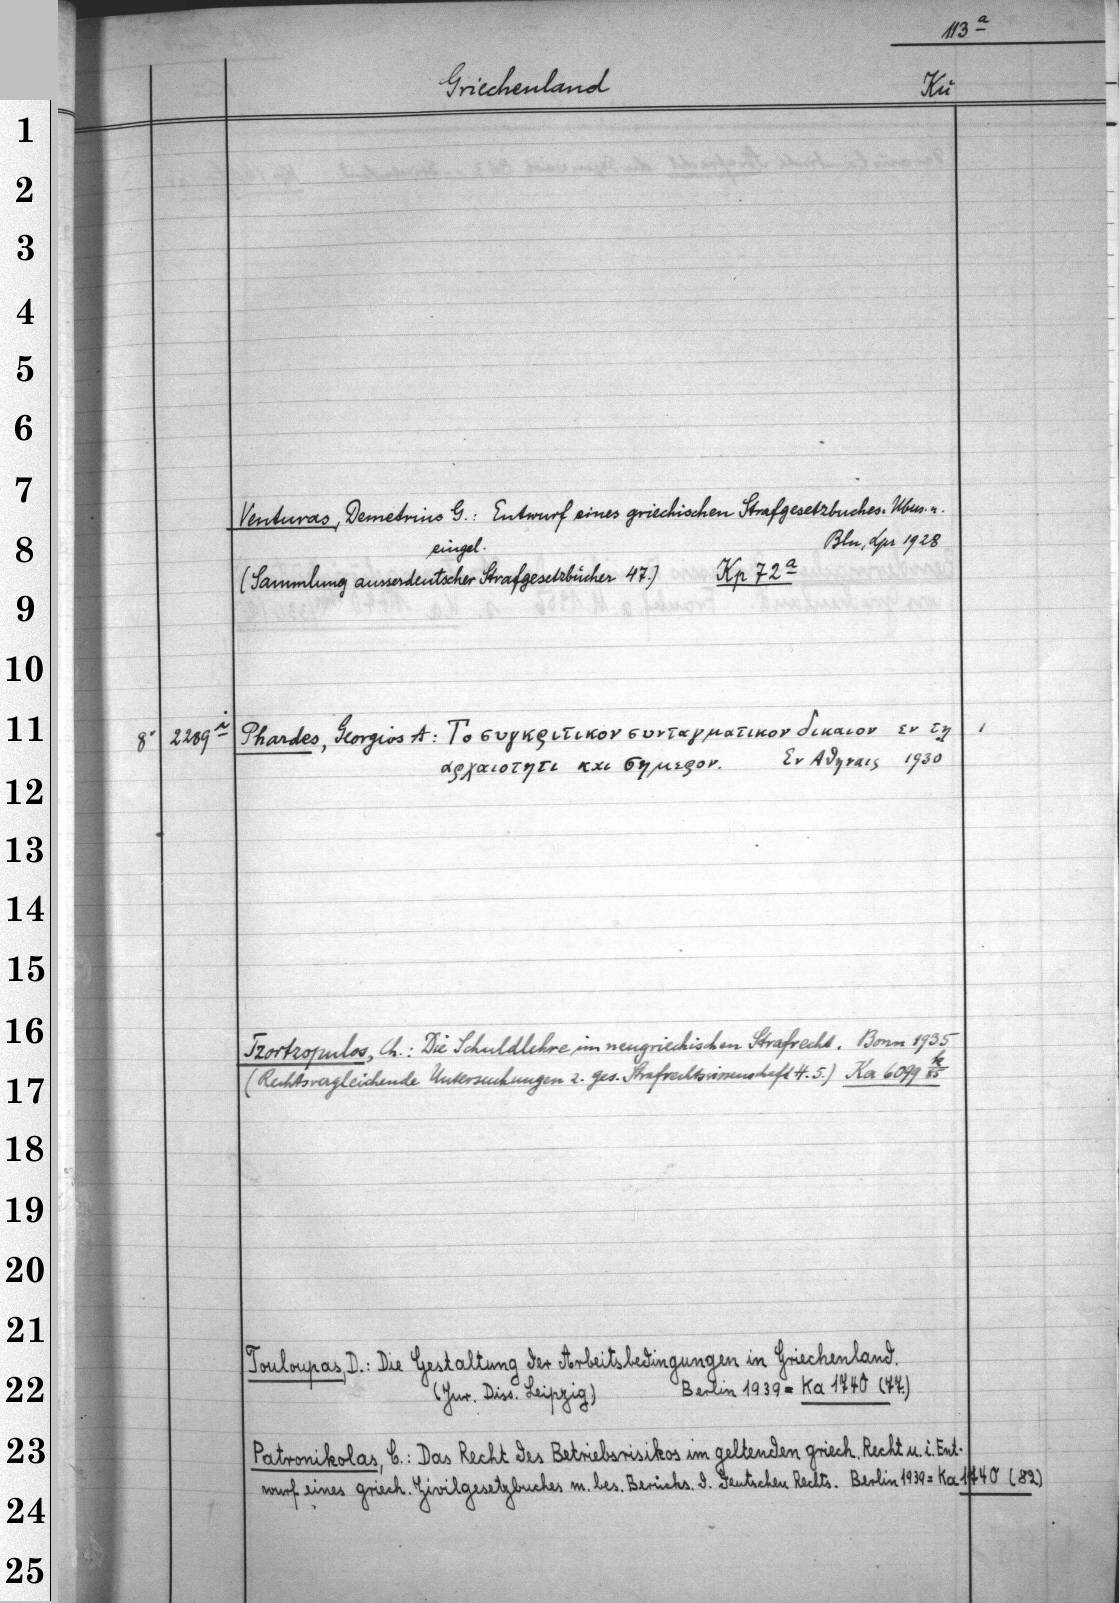 113 a
Griechenland Kü
1
2
3
4
5
6
7
Venturas, Demetrius G.: Entwurf eines griechischen Strafgesetzbuches. Übers. u.
8
eingel. Bln, Lpz 1928
(Sammlung ausserdeutscher Strafgesetzbücher 47.) Kp 72 a
9
10
11
8° 2289 i Phardes, Georgios A: Το συγκριτικον συνταγματικον δικαιον εν τη 1
αρχαιοτητι και σημερον. Εν Αθηναις 1930
12
13
14
15
16
Tzortzopulos, Ch.: Die Schuldlehre im neugriechischen Strafrecht. Bonn 1935
(Rechtsvergleichende Untersuchungen z. ges. Strafrechtswissenschaft H. 5.) Ka 6099
17
18
19
20
21
Touloupas, D.: Die Gestaltung der Arbeitsbedingungen in Griechenland.
22
(Jur. Diss. Leipzig) Berlin 1939 = Ka 1740 (77.)
23
Patronikolas, C.: Das Recht des Betriebsrisikos im geltenden griech. Recht u. i. Ent-
wurf eines griech. Zivilgesetzbuches m. bes. Berücks. d. deutschen Rechts. Berlin 1939 = Ka 1740 (82)
24
25